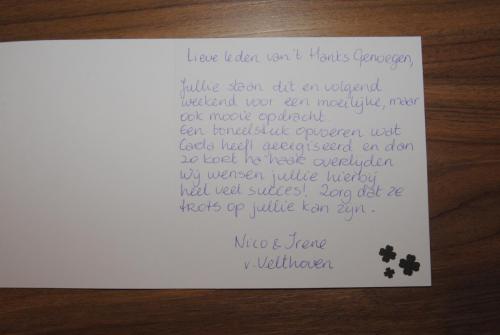 Lieve leden van 't Hanks Genoegen,
Jullie staan dit en volgend
weekend voor een moeilijke, maar
ook mooie opdracht.
Een toneelstuk opvoeren wat
Carda heeft geregiseerd en dan
zo kort na haar overlijden
Wij wensen jullie hierbij
heel veel succes! Zorg dat ze
trots op jullie kan zijn.
Nico & Irene
v. Velthoven